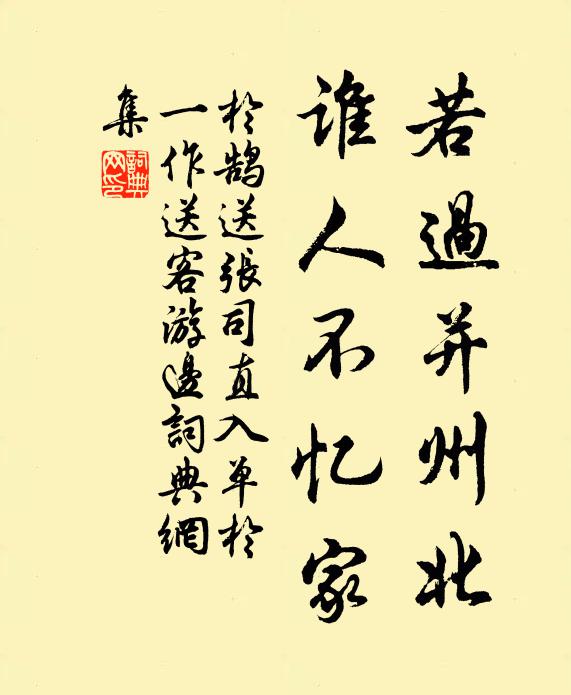 若過并州北
誰人不忆家
於鹄送張司直入单於
一作送客游邊詞典網
集
詞典网印